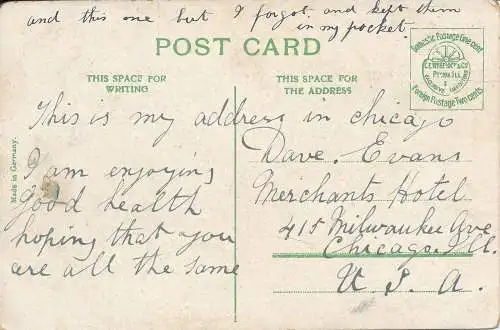 and this one but I forgot and kept them
in my pocket.
POST CARD
Domestic Postage One cent
Foreign Postage Two cents.
THIS SPACE FOR
WRITING
THIS SPACE FOR
THE ADDRESS
Made in Germany.
This is my address in chicago
I am enjoying
good health
hoping that you
are all the same
Dave. Evans
Merchants Hotel
415 Milwaukee Ave
Chicago. Ill.
U. S. A.